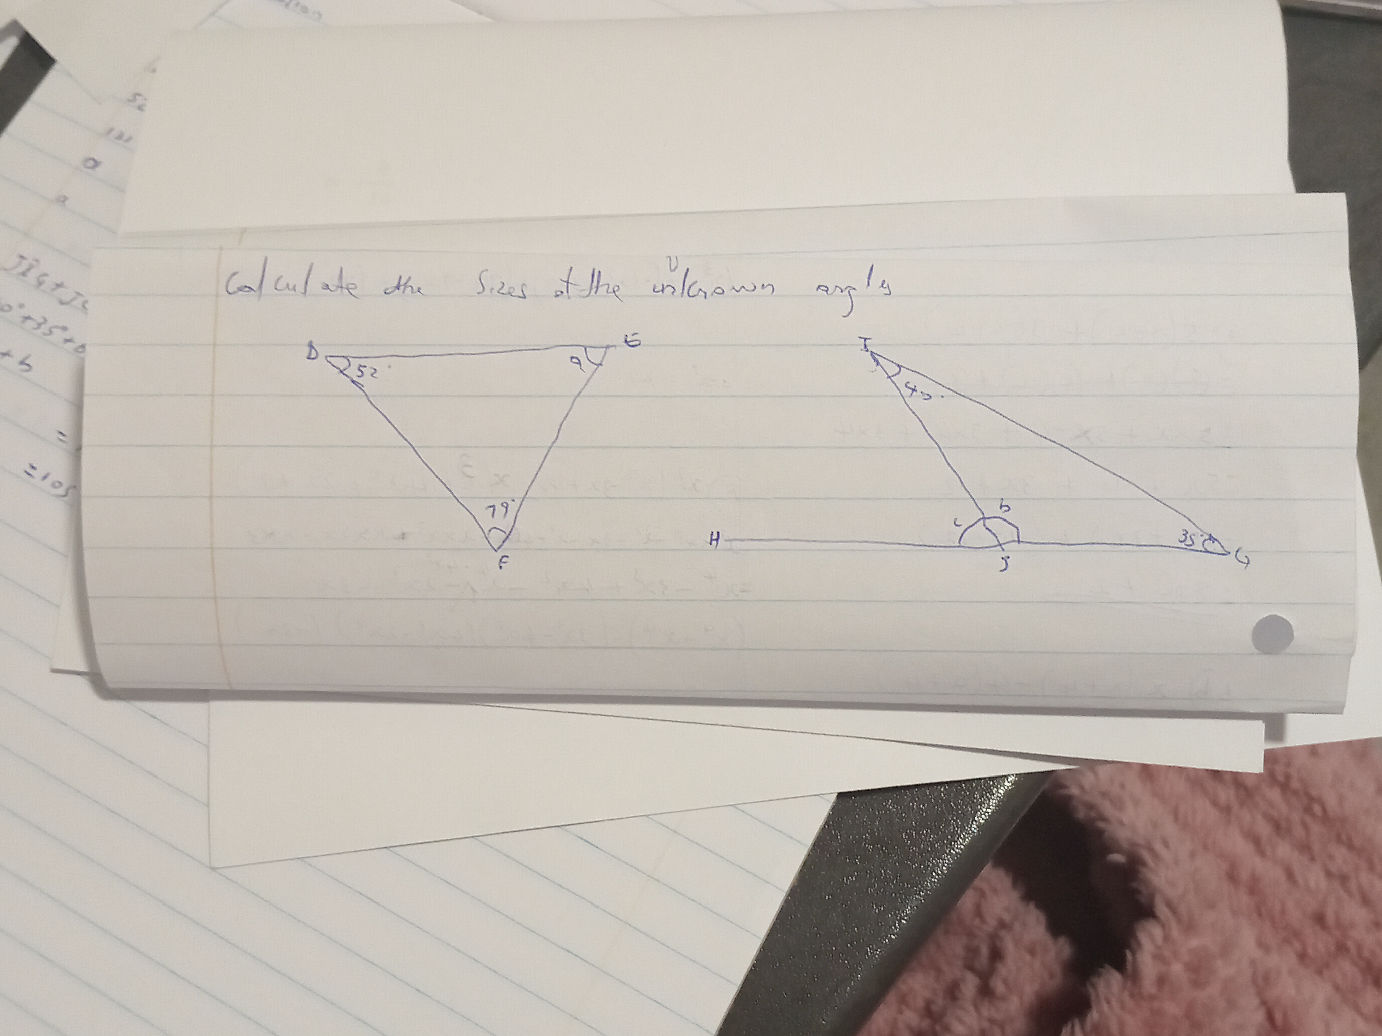 Calculate the Sizes of the unknown angles
D
52°
a
E
79°
F
I
40°
H
c
b
J
35°
G
a
a
+b
=105